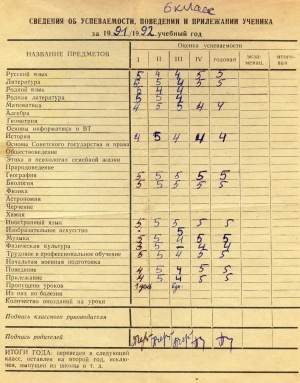 6 класс
СВЕДЕНИЯ ОБ УСПЕВАЕМОСТИ, ПОВЕДЕНИИ И ПРИЛЕЖАНИИ УЧЕНИКА
за 1991/1992 учебный год
НАЗВАНИЕ ПРЕДМЕТОВ
Оценка успеваемости
I II III IV годовая экза-менац. итого-вая
Русский язык 5 4 4 5 5
Литература 5 5 4 5 5
Родной язык 5 4 4
Родная литература 5 5 4
Математика 4 5 5 4 4
Алгебра
Геометрия
Основы информатики и ВТ
История 4 5 4 4 4
Основы Советского государства и права
Обществоведение
Этика и психология семейной жизни
Природоведение
География 5 5 5 5 5
Биология 5 5 5 5 5
Физика
Астрономия
Черчение
Химия
Иностранный язык 5 5 5 5 5
Изобразительное искусство
Музыка 5 5 5 5
Физическая культура 5 5 - 4 4
Трудовое и профессиональное обучение 5 5 4 5 5
Начальная военная подготовка
Поведение 4 5 4 5 5
Прилежание 4 5 4 5 5
Пропущено уроков
Из них по болезни
Количество опозданий на уроки
Подпись классного руководителя
Подпись родителей
ИТОГИ ГОДА: переведен в следующий
класс, оставлен на второй год, исклю-
чен, выпущен из школы и т. д.